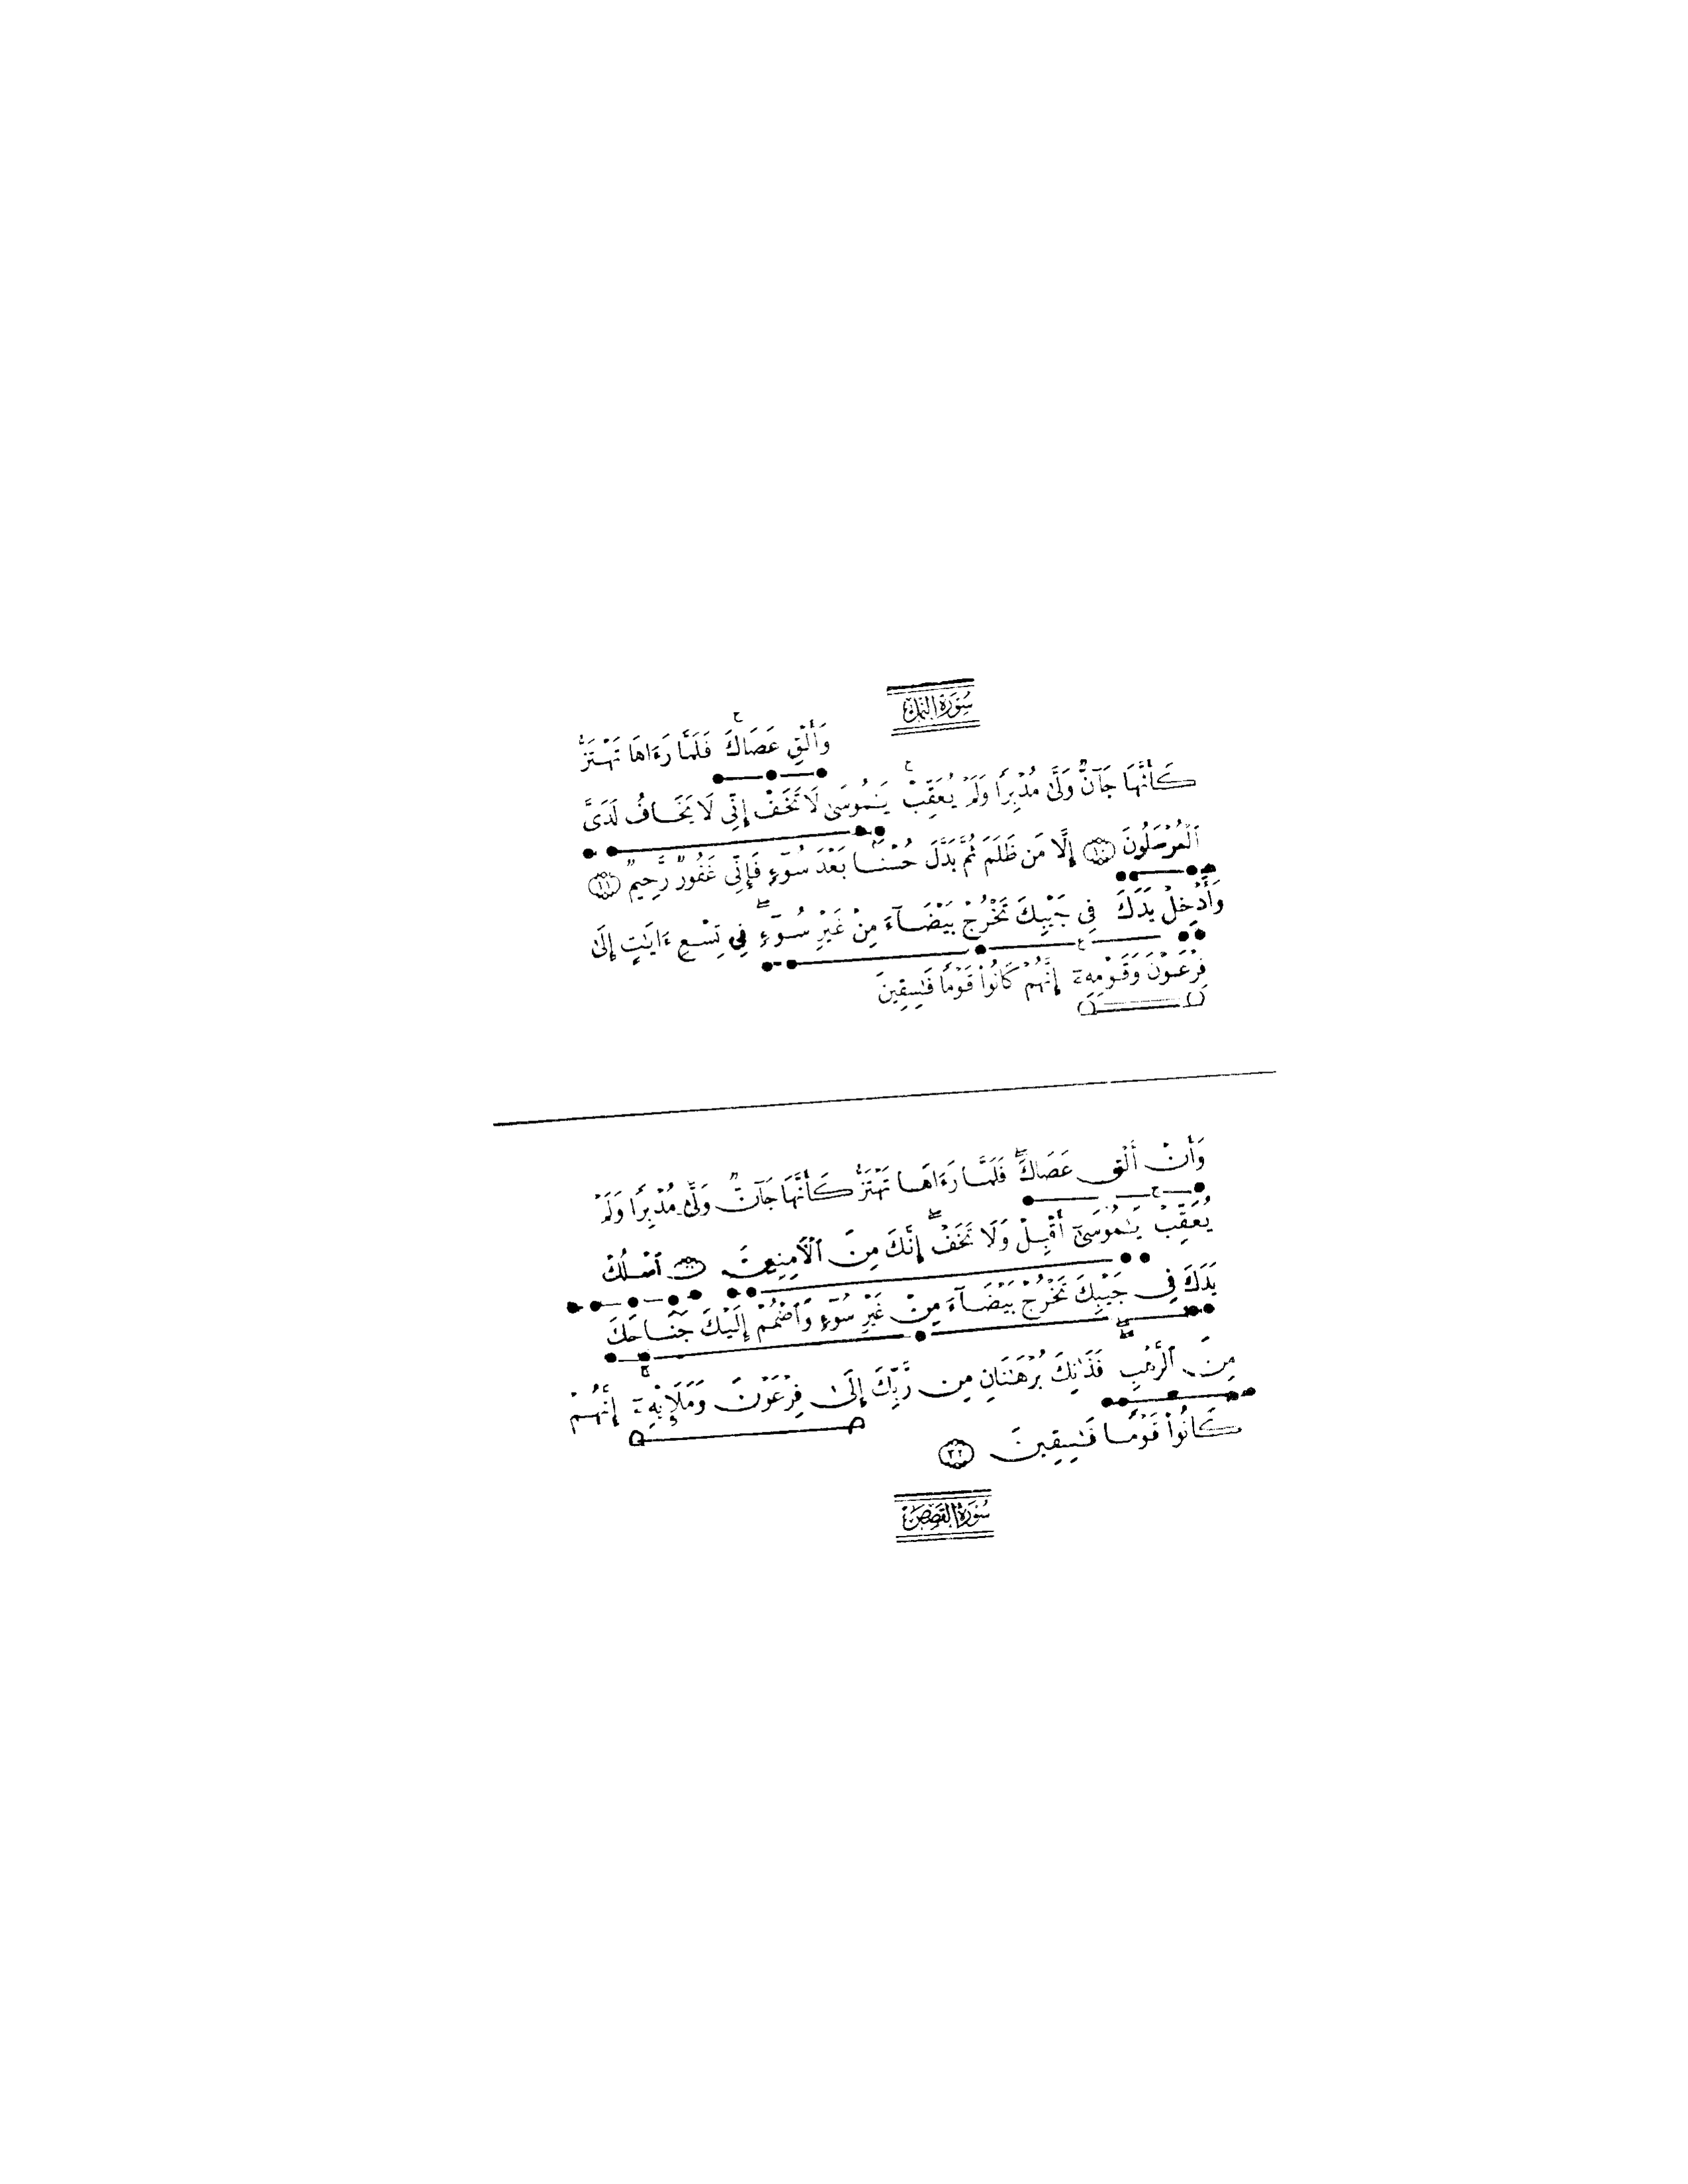 سُورَةُ النَّمْل
وَأَلْقِ عَصَاكَ ۚ فَلَمَّا رَءَاهَا تَهْتَزُّ
كَأَنَّهَا جَآنٌّ وَلَّىٰ مُدْبِرًا وَلَمْ يُعَقِّبْ ۚ يَٰمُوسَىٰ لَا تَخَفْ إِنِّى لَا يَخَافُ لَدَىَّ
ٱلْمُرْسَلُونَ ١٠ إِلَّا مَن ظَلَمَ ثُمَّ بَدَّلَ حُسْنًۢا بَعْدَ سُوٓءٍ فَإِنِّى غَفُورٌ رَّحِيمٌ ١١
وَأَدْخِلْ يَدَكَ فِى جَيْبِكَ تَخْرُجْ بَيْضَآءَ مِنْ غَيْرِ سُوٓءٍ ۖ فِى تِسْعِ ءَايَٰتٍ إِلَىٰ
فِرْعَوْنَ وَقَوْمِهِۦٓ ۚ إِنَّهُمْ كَانُوا۟ قَوْمًا فَٰسِقِينَ
وَأَنْ أَلْقِ عَصَاكَ ۖ فَلَمَّا رَءَاهَا تَهْتَزُّ كَأَنَّهَا جَآنٌّ وَلَّىٰ مُدْبِرًا وَلَمْ
يُعَقِّبْ ۚ يَٰمُوسَىٰٓ أَقْبِلْ وَلَا تَخَفْ ۖ إِنَّكَ مِنَ ٱلْءَامِنِينَ ٱسْلُكْ
يَدَكَ فِى جَيْبِكَ تَخْرُجْ بَيْضَآءَ مِنْ غَيْرِ سُوٓءٍ وَٱضْمُمْ إِلَيْكَ جَنَاحَكَ
مِنَ ٱلرَّهْبِ ۖ فَذَٰنِكَ بُرْهَٰنَانِ مِن رَّبِّكَ إِلَىٰ فِرْعَوْنَ وَمَلَإِي۟هِۦٓ ۚ إِنَّهُمْ
كَانُوا۟ قَوْمًا فَٰسِقِينَ ٣٢
سُورَةُ القَصَصِ